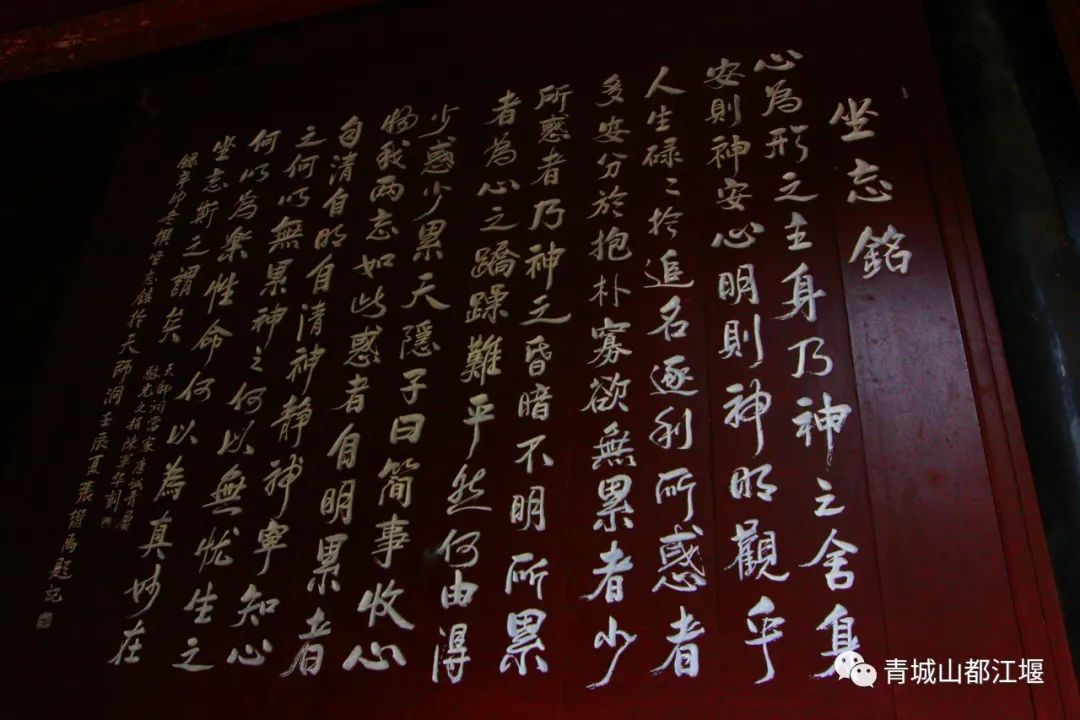 坐忘銘
心為形之主身乃神之舍身
安則神安心明則神明觀乎
人生碌〻於追名逐利所惑者
多安分於抱朴寡欲無累者少
所惑者乃神之昏暗不明所累
者為心之蹻躁難平然何由得
少惑少累天隱子曰簡事收心
物我兩忘如此惑者自明累者
自清自明自清神靜神寧知心
之何以無累神之何以無忧生之
何以為樂性命何以為真妙在
坐忘斯之謂矣
天師祠當家唐誠青
錄辛卯撰坐忘銘於天師洞壬辰夏張題記
青城山都江堰